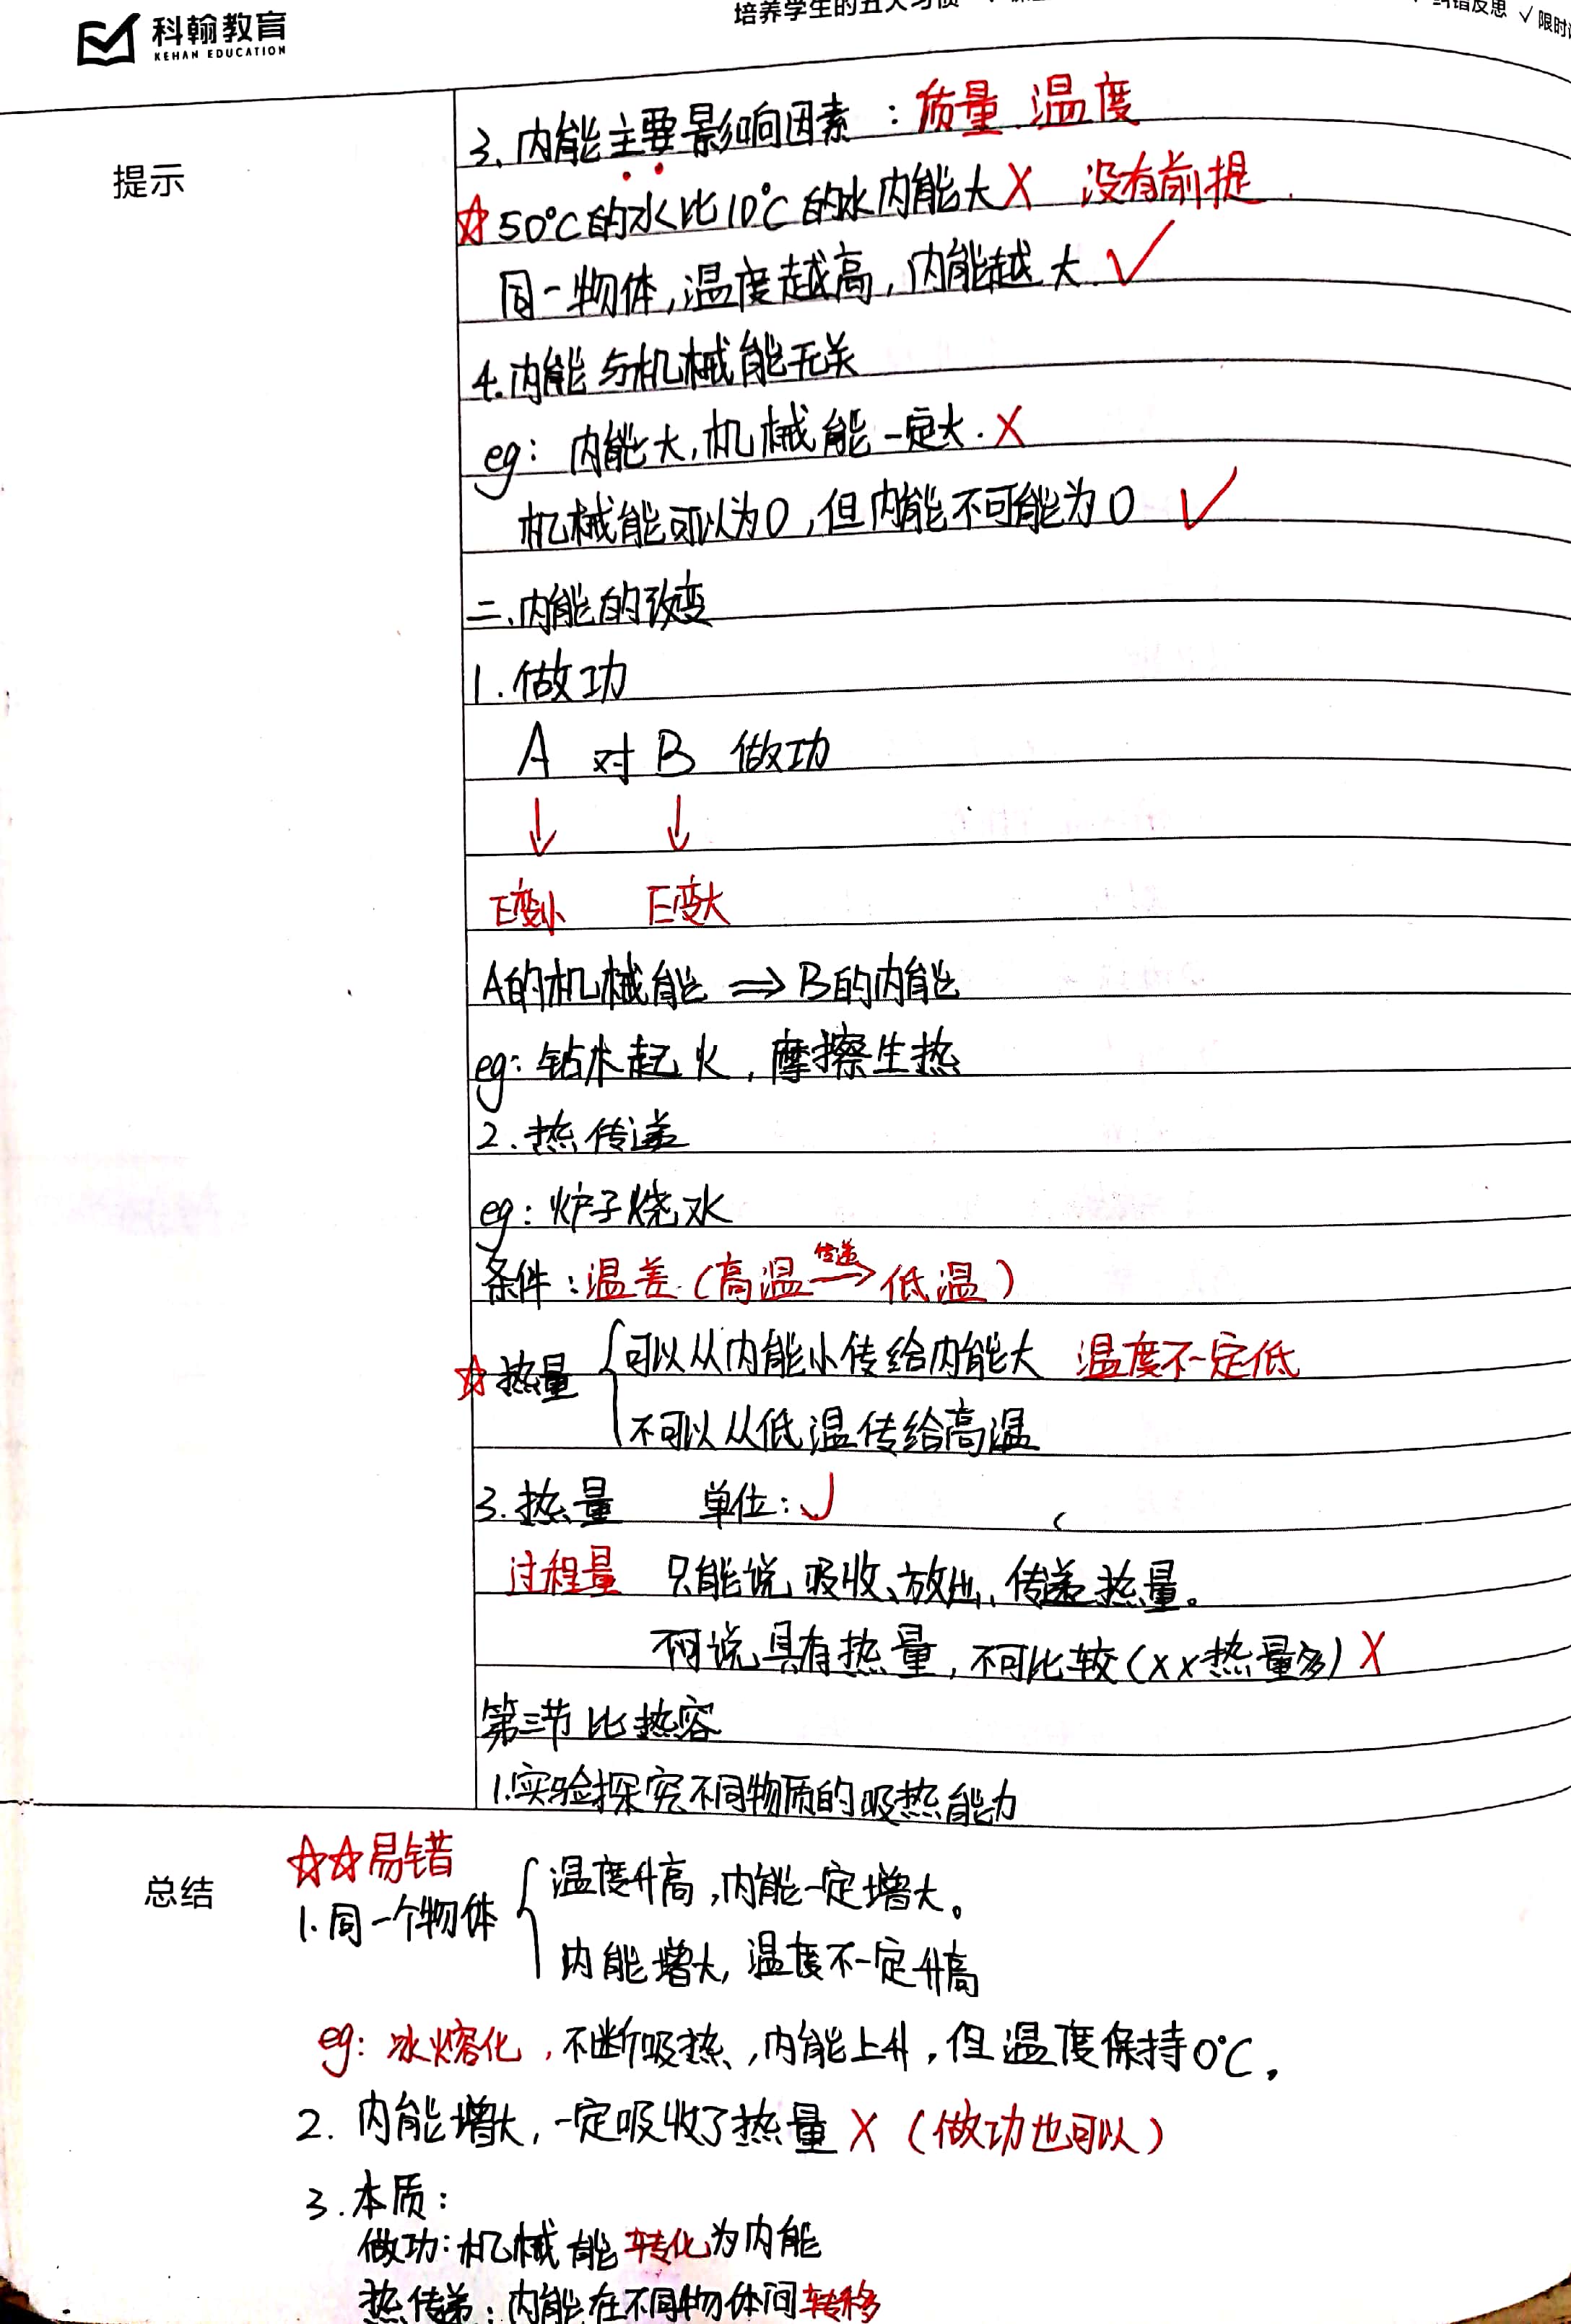 科翰教育
KEHAN EDUCATION
培养学生的五大习惯
纠错反思 √限时
提示
3.内能主要影响因素：质量 温度
☆50℃的水比10℃的水内能大 X 没有前提.
同一物体,温度越高,内能越大. ✓
4.内能与机械能无关
eg: 内能大,机械能一定大. X
机械能可以为0,但内能不可能为0 ✓
二.内能的改变
1.做功
A 对 B 做功
↓ ↓
E变小 E变大
A的机械能 ⇒ B的内能
eg: 钻木起火,摩擦生热
2.热传递
eg: 炉子烧水
条件:温差(高温 传递→ 低温)
☆热量 { 可以从内能小传给内能大 温度不一定低
不可以从低温传给高温
3.热量 单位:J
过程量 只能说吸收、放出、传递热量。
不可说具有热量,不可比较(xx热量多) X
第三节 比热容
1.实验探究不同物质的吸热能力
总结
☆☆易错
1.同一个物体 { 温度升高,内能一定增大。
内能增大,温度不一定升高
eg: 冰熔化,不断吸热,内能上升,但温度保持0℃.
2. 内能增大,一定吸收了热量 X (做功也可以)
3.本质:
做功:机械能转化为内能
热传递:内能在不同物体间转移